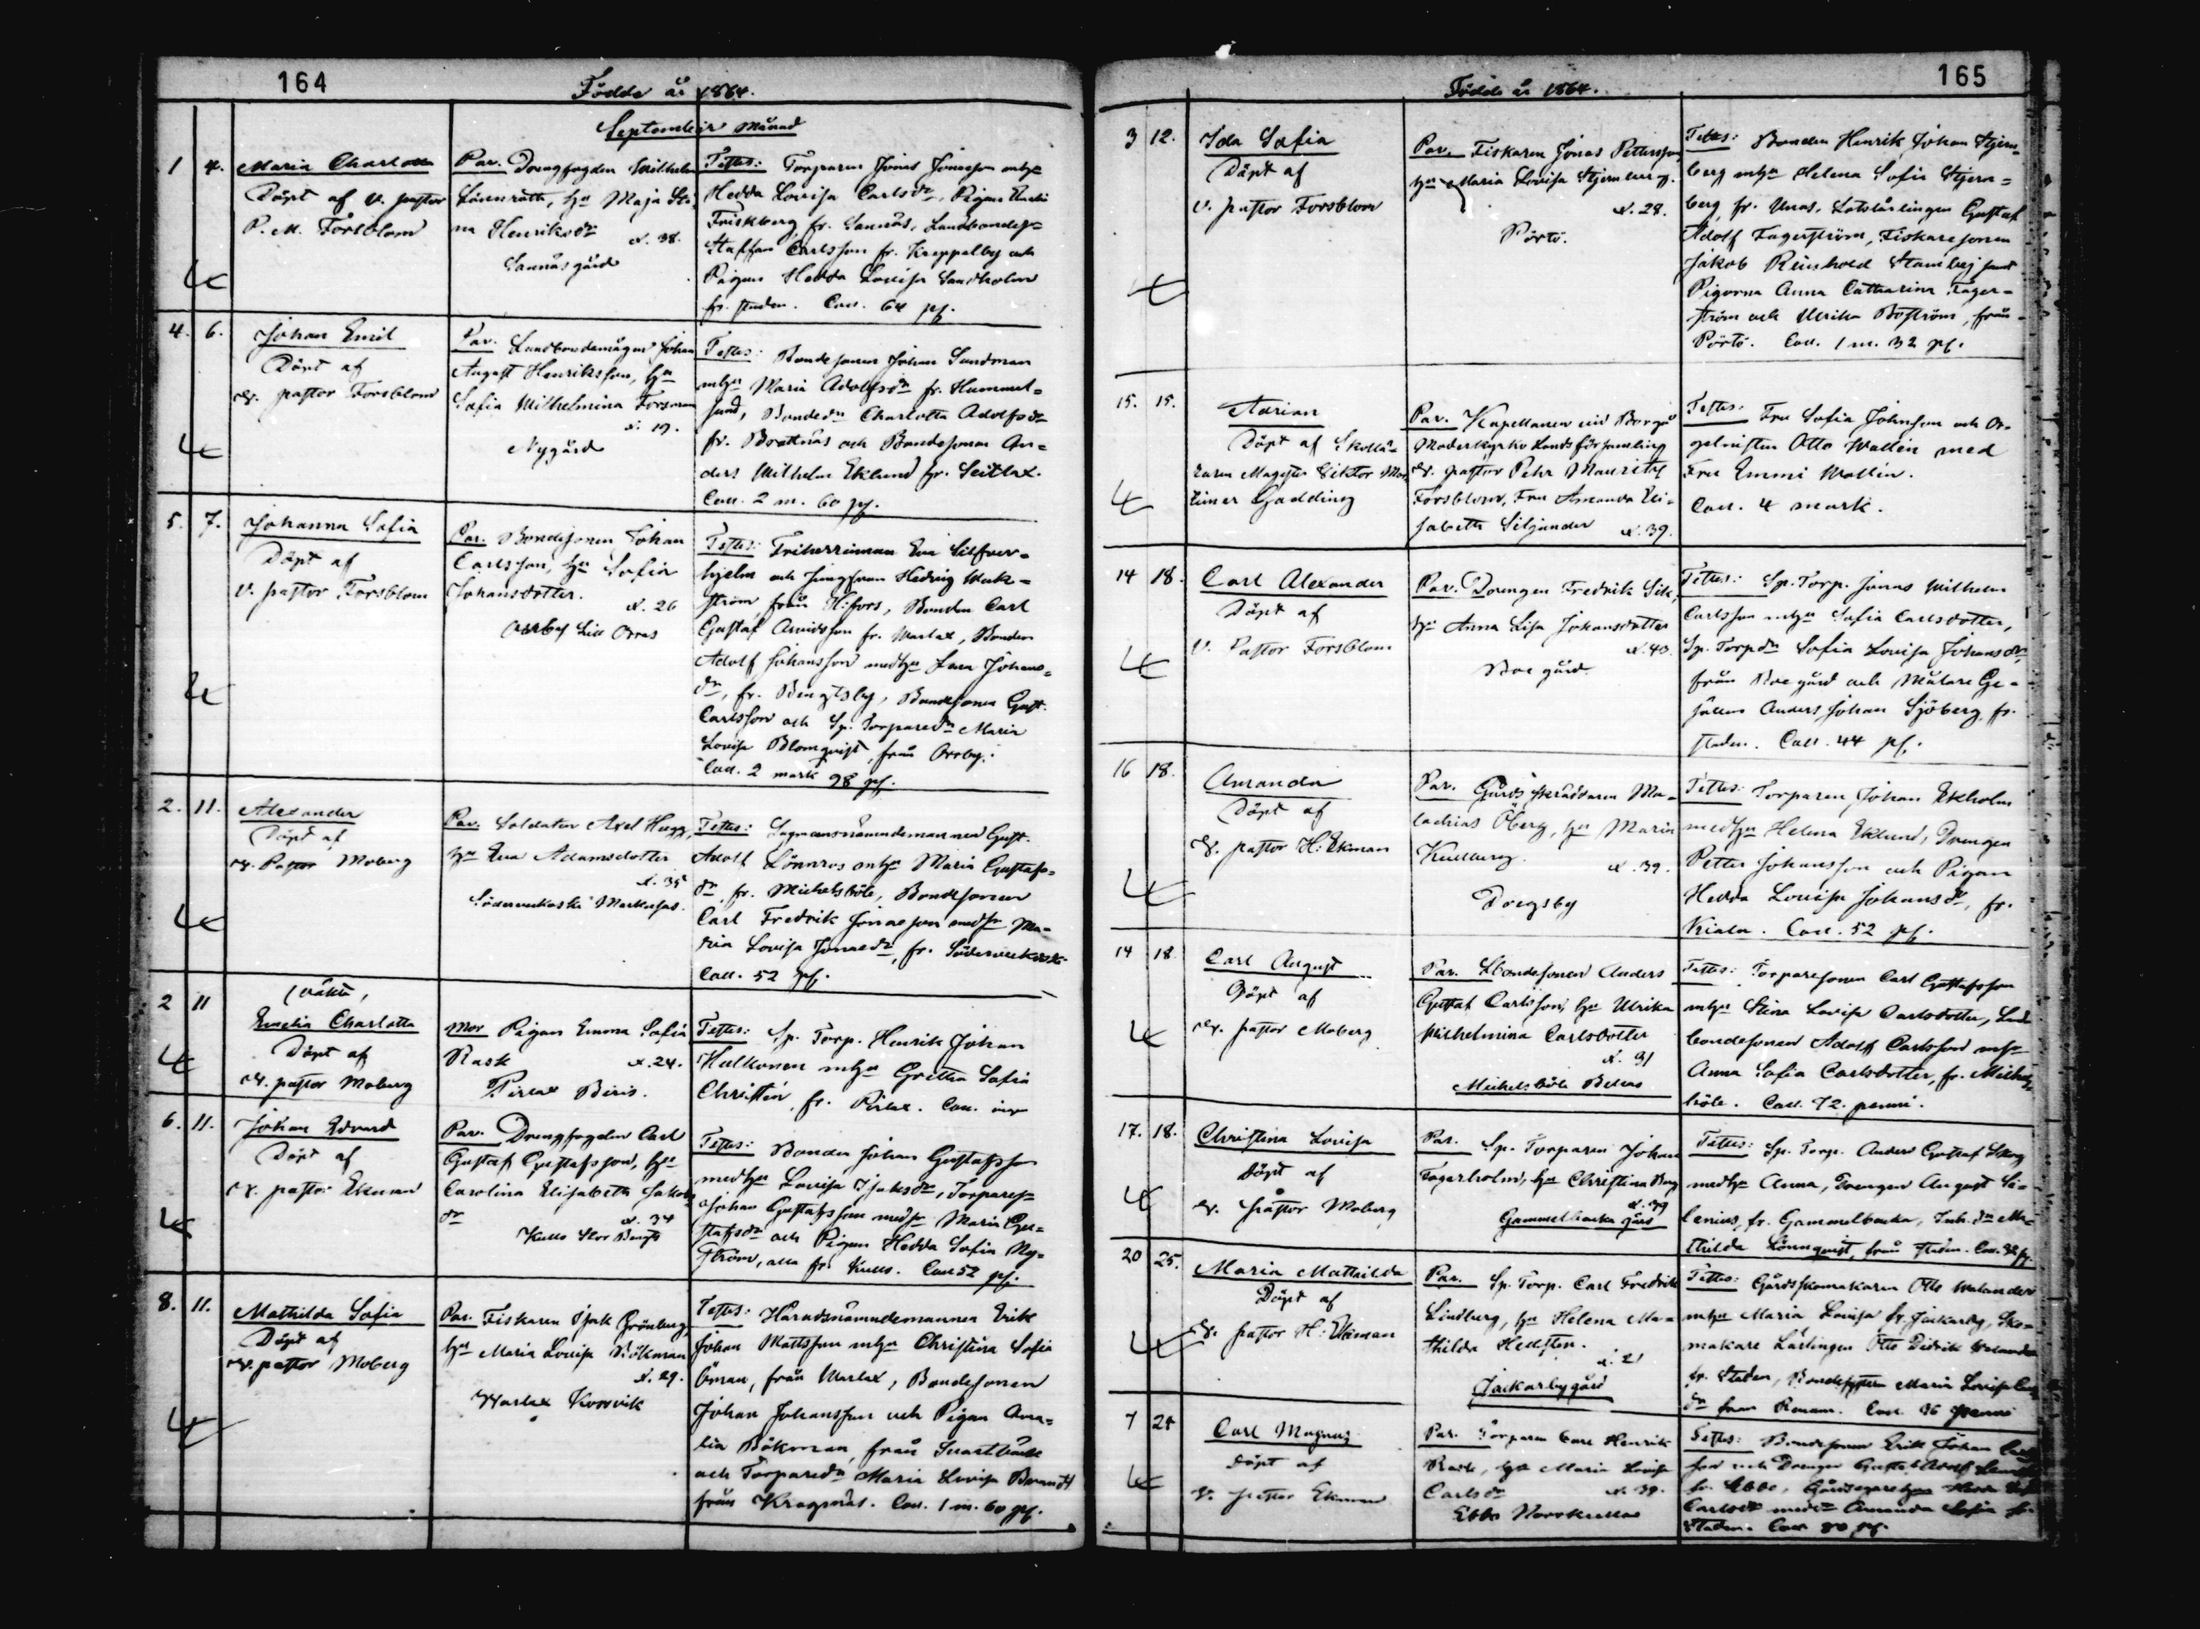 164
Födde år 1864.
September månad
1 4. Maria Charlotta
Döpt af v. pastor
P. M. Forsblom
Par. Drengfogden Wilhelm
Lönnroth, hu Maja Sti-
na Henriksdr
d. 38.
Sannäs gård
Testes: Torparen Jonas Jonasson mhu
Hedda Lovisa Carlsdr, Pigan
Friskberg fr. Sannäs, Landbondes-
Staffan Carlsson fr. Kreppelby och
Pigan Hedda Lovisa Sandholm
fr. staden. Coll. 64 pf.
4. 6. Johan Emil
Döpt af
v. pastor Forsblom
Par. Landbondemågen Johan
August Henriksson, hu
Sofia Wilhelmina Forsman
d. 19.
Nygård
Testes: Bondesonen Johan Sundman
mhu Maria Adolfsdr fr. Hummel-
sund, Bondedr Charlotta Adolfsdr
fr. Brottnäs och Bondesonen An-
ders Wilhelm Eklund fr. Seitlax.
Coll. 2 m. 60 pf.
5. 7. Johanna Sofia
Döpt af
v. pastor Forsblom
Par. Bondesonen Johan
Carlsson, hu Sofia
Johansdotter.
d. 26
Orrby Lill Orras
Testes: Friherrinnan Eva Silfver-
hjelm och Jungfrun Hedvig Weck-
ström, från H:fors, Bonden Carl
Gustaf Arvidsson fr. Warlax, Bonden
Adolf Johansson medhu Lena Johans-
dr, fr. Bengtsby, Bondesonen Gust.
Carlsson och Sp. Torparedr Maria
Lovisa Blomqvist, från Orrby.
Coll. 2 mark 98 pf.
2. 11. Alexander
Döpt af
v. Pastor Moberg
Par. Soldaten Axel Hugg,
hu Eva Adamsdotter
d. 35
Söderveckoski Markusas.
Testes: Lagmansnämndemannen Gust.
Adolf Lönnros mhu Maria Gustafs-
dr, fr. Michelsböle, Bondesonen
Carl Fredrik Jonasson medhu Ma-
ria Lovisa Jonaedr, fr. Söderveckoski
Coll. 52 pf.
2 11 (oäkta,
Emelia Charlotta
Döpt af
v. pastor Moberg
Mor Pigan Emma Sofia
Rask
d. 24.
Pirlax Biris.
Testes: Sp. Torp. Henrik Johan
Hulkonen mhu Gretha Sofia
Christin, fr. Pirlax. Coll.
6. 11. Johan Edvard
Döpt af
v. pastor Ekman
Par. Drengfogden Carl
Gustaf Gustafsson, hu
Carolina Elisabeth Jakobs
dr
d. 34
Kullo Stor Bengts
Testes: Bonden Johan Gustafsson
medhu Lovisa Isaksdr, Torpares-
Johan Gustafsson medhu Maria Gu-
stafsdr och Pigan Hedda Sofia Ny-
ström, alla fr. Kullo. Coll 52 pf.
8. 11. Mathilda Sofia
Döpt af
v. pastor Moberg
Par. Fiskaren Isak Grönberg,
hu Maria Lovisa Bökman
d. 29.
Warlax Korsvik
Testes: Häradsnämndemannen Erik
Johan Mattsson mhu Christina Sofia
Öman, från Warlax, Bondesonen
Johan Johansson och Pigan Ama-
lia Bökman, från Svartbäck
och Torparedr Maria Lovisa Brandt
från Kragnäs. Coll. 1 m. 60 pf.
165
Födde år 1864.
3 12. Ida Sofia
Döpt af
v. pastor Forsblom
Par. Fiskaren Jonas Pettersson
hu Maria Lovisa Stjernberg.
d. 28.
Pörtö.
Testes: Bonden Henrik Johan Stjern-
berg mhu Helena Sofia Stjern-
berg, fr. Unas, Lotslärlingen Gustaf
Adolf Fagerström, Fiskaresonen
Jakob Reinhold samt
Pigorna Anna Catharina Fager-
ström och Ulrika Boström, från
Pörtö. Coll. 1 m. 32 pf.
15. 15. Adrian
Döpt af Skollä-
raren Magister Viktor Mor-
timer Gadding
Par. Kapellanen vid Borgå
Moderkyrko Landsförsamling
v. pastor Pehr Mauritz
Forsblom, Fru Amanda Eli-
sabeth Siljander d. 39.
Testes: Fru Sofia Johnsson och Or-
gelnisten Otto Wallén med
Fru Emmi Wallén.
Coll. 4 mark.
14 18. Carl Alexander
Döpt af
v. Pastor Forsblom
Par. Drengen Fredrik Sik,
hu Anna Lisa Johansdotter
d. 40.
Boe gård
Testes: Sp. Torp. Jonas Wilhelm
Carlsson mhu Sofia Carlsdotter,
Sp. Torpdr Sofia Lovisa Johansdr
från Boe gård och Målare Ge-
sällen Anders Johan Sjöberg, fr.
staden. Coll. 44 pf.
16 18. Amanda
Döpt af
v. pastor H: Ekman
Par. Gårds skräddaren Ma-
lachias Öberg, hu Maria
Kullberg.
d. 39.
Drägsby
Testes: Torparen Johan Ekholm
medhu Helena Eklund, Drengen
Petter Johansson och Pigan
Hedda Lovisa Johansdr, fr.
Kiala. Coll. 52 pf.
14 18 Carl August
Döpt af
v. pastor Moberg
Par. Bondesonen Anders
Gustaf Carlsson, hu Ulrika
Wilhelmina Carlsdotter
d. 31
Michelsböle Bellas
Testes: Torparesonen Carl Gustafsson
mhu Stina Lovisa Carlsdotter, Land
bondesonen Adolf Carlsson mhu
Anna Sofia Carlsdotter, fr. Michels
böle. Coll. 72. penni.
17. 18. Christina Lovisa
Döpt af
v. pastor Moberg
Par. Sp. Torparen Johan
Fagerholm, hu Christina Berg
d. 39
Gammelbacka gård
Testes: Sp. Torp. Anders Gustaf Skog
medhu Anna, Drengen August Se-
lenius, fr. Gammelbacka, Inh. dr Ma-
thilda Lönnqvist, från staden. Coll. 32 pf.
20 25. Maria Mathilda
Döpt af
v. pastor H: Ekman
Par. Sp. Torp. Carl Fredrik
Lindberg, hu Helena Ma-
thilda Hellsten.
d. 21
Jackarby gård
Testes: Gårdsskomakaren Otto Walander
mhu Maria Lovisa fr. Jackarby, Sko-
makare Lärlingen Otto Didrik Walander
fr. Staden, Maria Lovisa
dr från Coll. 36 penni
7 24 Carl Magnus
Döpt af
v. pastor Ekman
Par. Torparen Carl Henrik
hu Maria Lovisa
Carlsdr
d. 39.
Ebbo Norrkullas
Testes: Bondesonen Erik Johan
son och Drengen Gustaf Adolf
fr. Ebbo,
Carlsdr Amanda Sofia fr.
Staden. Coll 80 pf.